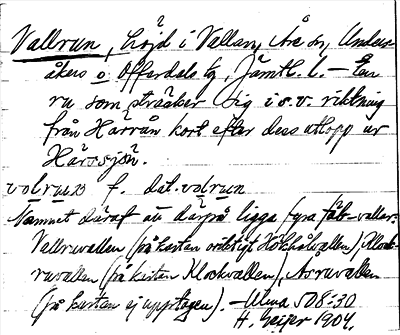 Vallrun, höjd i Vallan, Åre sn, Under-
åkers o. Offerdals tg, Jämtl. l. – En
ru som sträcker sig i s.v. riktning
från Härrån kort efter dess utlopp ur
Härrsjön.
volrun f. dat. volrun
Namnet däraf att därpå ligga fyra fäb-vallar:
Vallruvallen (på kartan oriktigt Höckhålvallen), Klock-
ruvallen (på kartan Klockvallen), Årruvallen
(på kartan ej upptagen). – Ulma 508:30
H. Geijer 1904.